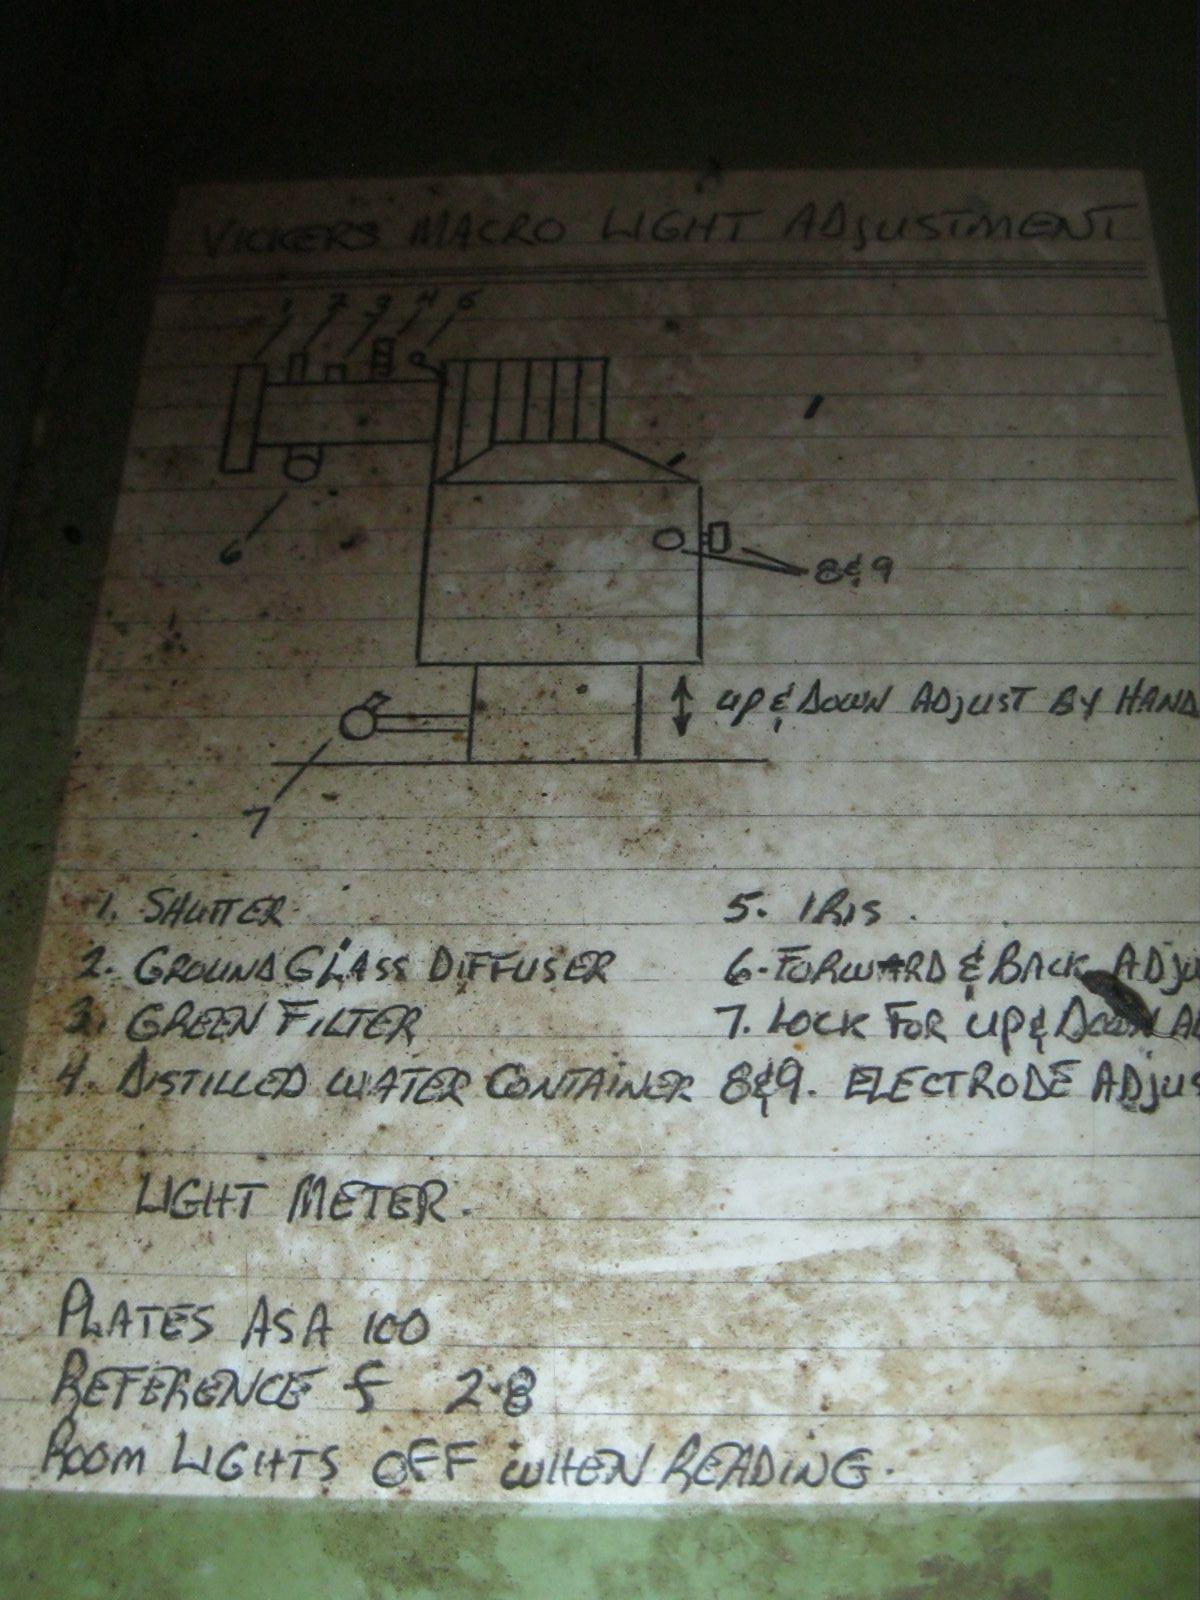 VICKERS MACRO LIGHT ADJUSTMENT
1 2 3 4 5
6
8&9
UP & DOWN ADJUST BY HAND
7
1. SHUTTER
5. IRIS.
2. GROUND GLASS DIFFUSER
6. FORWARD & BACK ADJU
3. GREEN FILTER
7. LOCK FOR UP & DOWN
4. DISTILLED WATER CONTAINER
8&9. ELECTRODE ADJUS
LIGHT METER.
PLATES ASA 100
REFERENCE f 2.8
ROOM LIGHTS OFF WHEN READING.